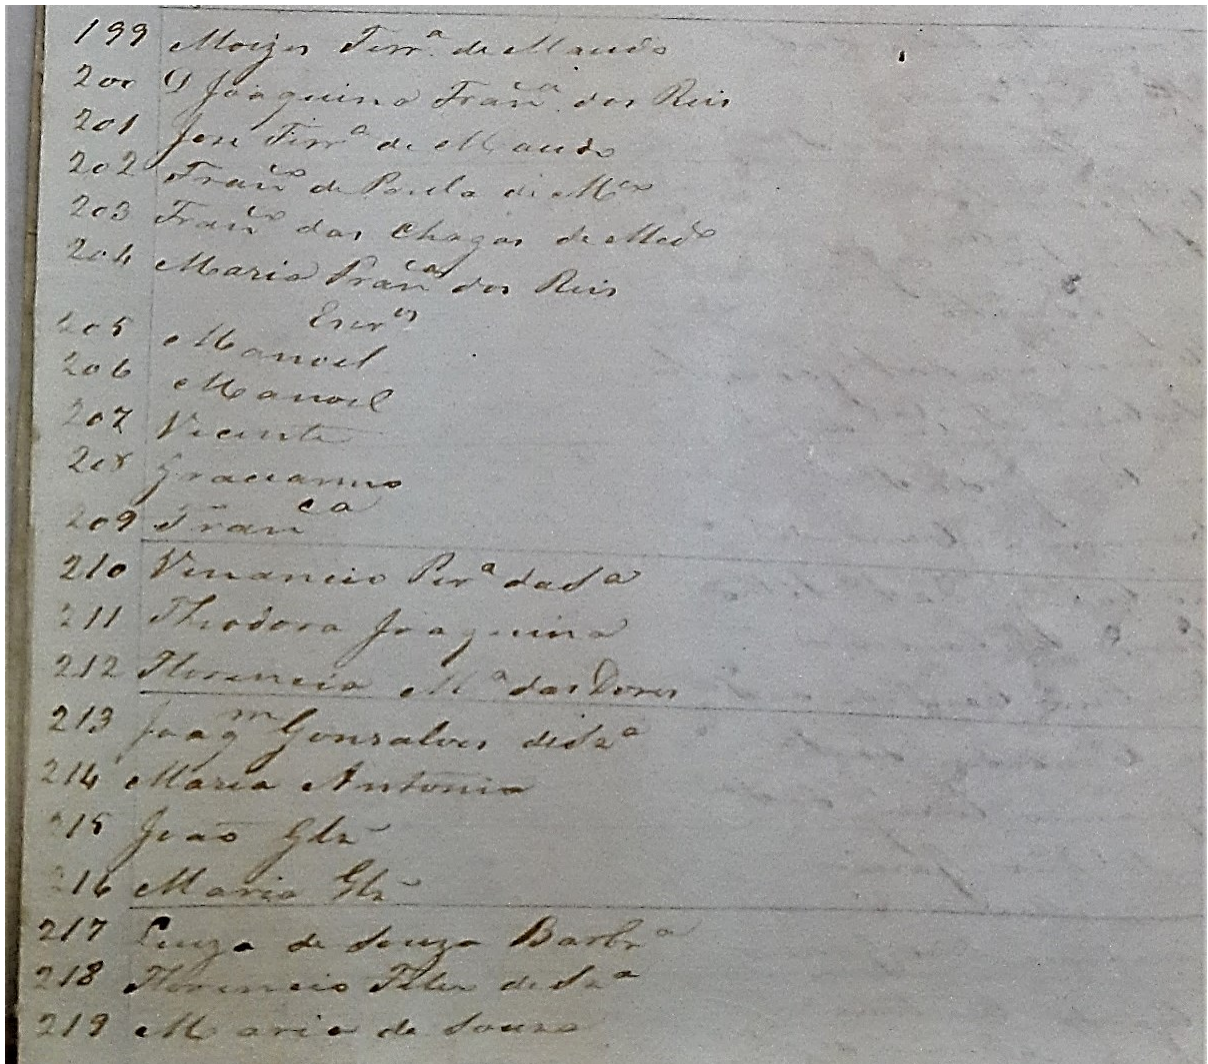 199 Moizes Ferr.ª de Macedo
200 D Joaquina Franc.ª dos Reis
201 Jose Ferr.ª de Macedo
202 Franc.co de Paula de M.co
203 Franc.co das Chagas de Macdo
204 Maria Franc.ª dos Reis
Escr.os
205 Manoel
206 Manoel
207 Vicente
208 Gracianno
209 Franca
210 Venancio Per.ª da S.ª
211 Theodora Joaquina
212 Florencia M.ª das Dores
213 Joaq.m Gonsalves de Sz.ª
214 Maria Antonia
215 João Glz
216 Maria Glz
217 Luiza de Souza Barbr.ª
218 Florencio Felix de Sz.ª
219 Maria de Souza